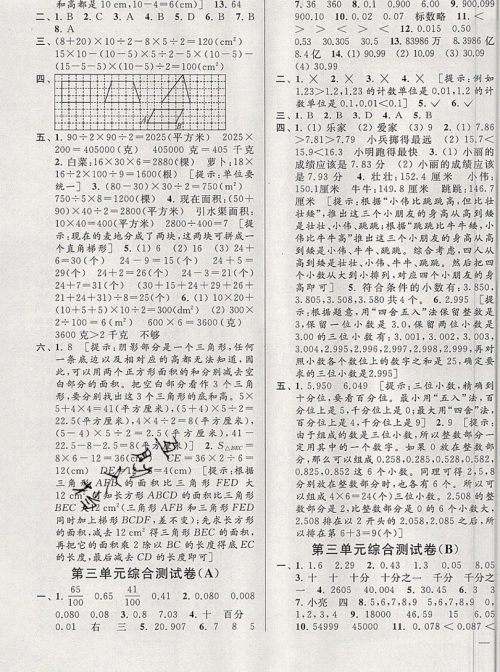 和高都是 10 cm,10-4=6(cm)] 13. 64
二、1. B 2. C 3. A 4. B 5. D 6. B 7. B
8. A
三、(8+20)×10÷2-8×5÷2=120(cm²)
15×10-(10-5)×5÷2-5×(10-5)-
(15-5-5)×(10-5)÷2=100(cm²)
四、
A
B
五、1. 90÷2×90÷2=2025(平方米) 2025×
200=405000(克) 405000 克=405 千克
2. 白菜:16×30×6=2880(棵) 萝卜:18×
16÷2×100÷9=1600(棵) [提示:单位要
统一] 3. (80-30)×30÷2=750(m²)
750÷5×8=1200(棵) 4. 现在面积:(50+
90)×40÷2=2800(平方米) 引水渠面积:
10×40=400(平方米) 2800÷400=7 [提
示:现在的麦地分成了两块,这两块可拼成一
个直角梯形] 5. (1) 6 (2) 16 (3) 24÷
6=30(个) 24-9=15(个) 24+5=
29(个) 24+2=26(个) 24-3=21(个)
24+7=31(个) (30+15+24+29+26+
21+24+31)÷8=25(个) 6. (1) 10×20+
(10+5+5)×10÷2=300(dm²) (2) 300×
2÷100=6(m²) 600×6=3600(克)
3600 克>2 千克 不够
六、1. 8 [提示:阴影部分是一个三角形,任何
一条底边以及相对应的高都无法知道,因
此,可以用两个正方形面积的和分别减去空
白部分的面积。把空白部分看作 3 个三角
形,要分别找出这 3 个三角形的底和高。5×
5+4×4=41(平方厘米),(5+4)×5÷2=
22.5(平方厘米),4×4÷2=8(平方厘米),
(5-4)×5÷2=2.5(平方厘米),41-
22.5-8-2.5=8(平方厘米)]
8×6-12=36(cm²) CE=36×2÷6=
12(cm) =4(cm) [提示:根据
三角形 AFB 的面积比三角形 FED 大
12 cm² 可知长方形 ABCD 的面积比三角形
BEC 大 12 cm²(三角形 AFB 和三角形 FED
同时加上梯形 BCDF,差不变);先求长方形
的面积,减去 12 cm² 得三角形 BEC 的面积,
再把它的面积乘 2 除以 BC 的长度得底 EC
的长度,最后减去 CD 的长度即可]
第三单元综合测试卷(A)
一、1. 65/100 0.65 41/100 0.41 2. 0.080 0.008
0.080 0.08 3. 0.8 7.03 4. 十 百分
0.01 右 三 5. 20.907 6. 7 8 5
7. 36 360 8. 0.1 0.900 6.00 9. 900.099
900.10 10. 0.02 0.07 标数略 11. <
> > < > < 12. 0.015 0.50
0.53 30.305 30.5 13. 83986 万 8.3986 亿
8.4 亿 14. (1) 90.99 (2) 10.09 (3) 30.09
(4) 30.99
二、1. × 2. × 3. × 4. × [提示:例如
1.23>1.2,1.23 的计数单位是 0.01,1.2 的计
数单位是 0.1,0.01<0.1] 5. √ 6. √
三、1. B 2. B 3. D 4. A 5. B
四、1. (1) 乐家 (2) 爱家 (3) 9 2. (1) 7.86
>7.81>7.79 小兵掷得最远 (2) 15.7<
15.9<16.3 小明跑得最快 3. (1) 小丽的
成绩应该是 7.83 分 (2) 小丽的成绩应该是
7.93 分 4. 壮壮:152.4 厘米 小伟:
150.1 厘米 牛牛:149.8 厘米 跳跳:146.7
厘米 [提示:根据“小伟比跳跳高,但比壮
壮矮”,推出这三个小朋友的身高从高到矮
是壮壮、小伟、跳跳;根据“跳跳比牛牛矮,小
伟比牛牛高”推出这三个小朋友的身高从高
到矮是小伟、牛牛、跳跳。综合考虑,四人从
高到矮是壮壮、小伟、牛牛、跳跳。然后把四
个小数从大到小排列,对应四个小朋友的身
高即可] 5. 符合条件的小数有:3.850,
3.805,3.508,3.580 共 4 个。6. 2.995 [提
示:根据题意,用“四舍五入”法保留整数是
3,保留一位小数是 3.0,保留两位小数是
3.00 的三位小数有:3.001,3.002,3.003,
3.004,2.995,2.996,2.997,2.998,2.999,再对
照小数各个数位上的数字之和是 25,确定要
求的三位小数是 2.995]
五、1. 5.950 6.049 [提示:三位小数,精确到
十分位,要看百分位。最小用“五入”法,百
分位上是 5,千分位上是 0;最大用“四舍”法,
百分位上是 4,千分位上是 9] 2. 9 [提示:
由于组成的数是三位小数,所以整数部分一
定用其中的一个数字。如果 0 放在整数部
分,那么可以组成 0.258,0.285,0.528,0.582,
0.825,0.852 这 6 个小数。同理可得 2,5,8
分别放在整数部分时,也各有 6 个。所以可
以组成 4×6=24(个)三位小数。2.508 的整
数部分是 2,比整数部分是 0 的 6 个小数大,
2.508 排在以 2 开头的 2.058,2.085 之后,所
以排在第 6+3=9(个)]
第三单元综合测试卷(B)
一、1. 1.6 2.29 2. 0.43 1.3 0.05 8.05
3. 十 十 十分 十分之一 千分 千分之
一 4. 2605 40.004 5. 30.45 6. 3 3
7. 小亮 四 8. 5,6,7,8,9 5,6,7,8,9 0,
1,2,3,4 9. 4 18000 46.59 15 6.05
10. 54999 45000 11. 0.078<0.087<